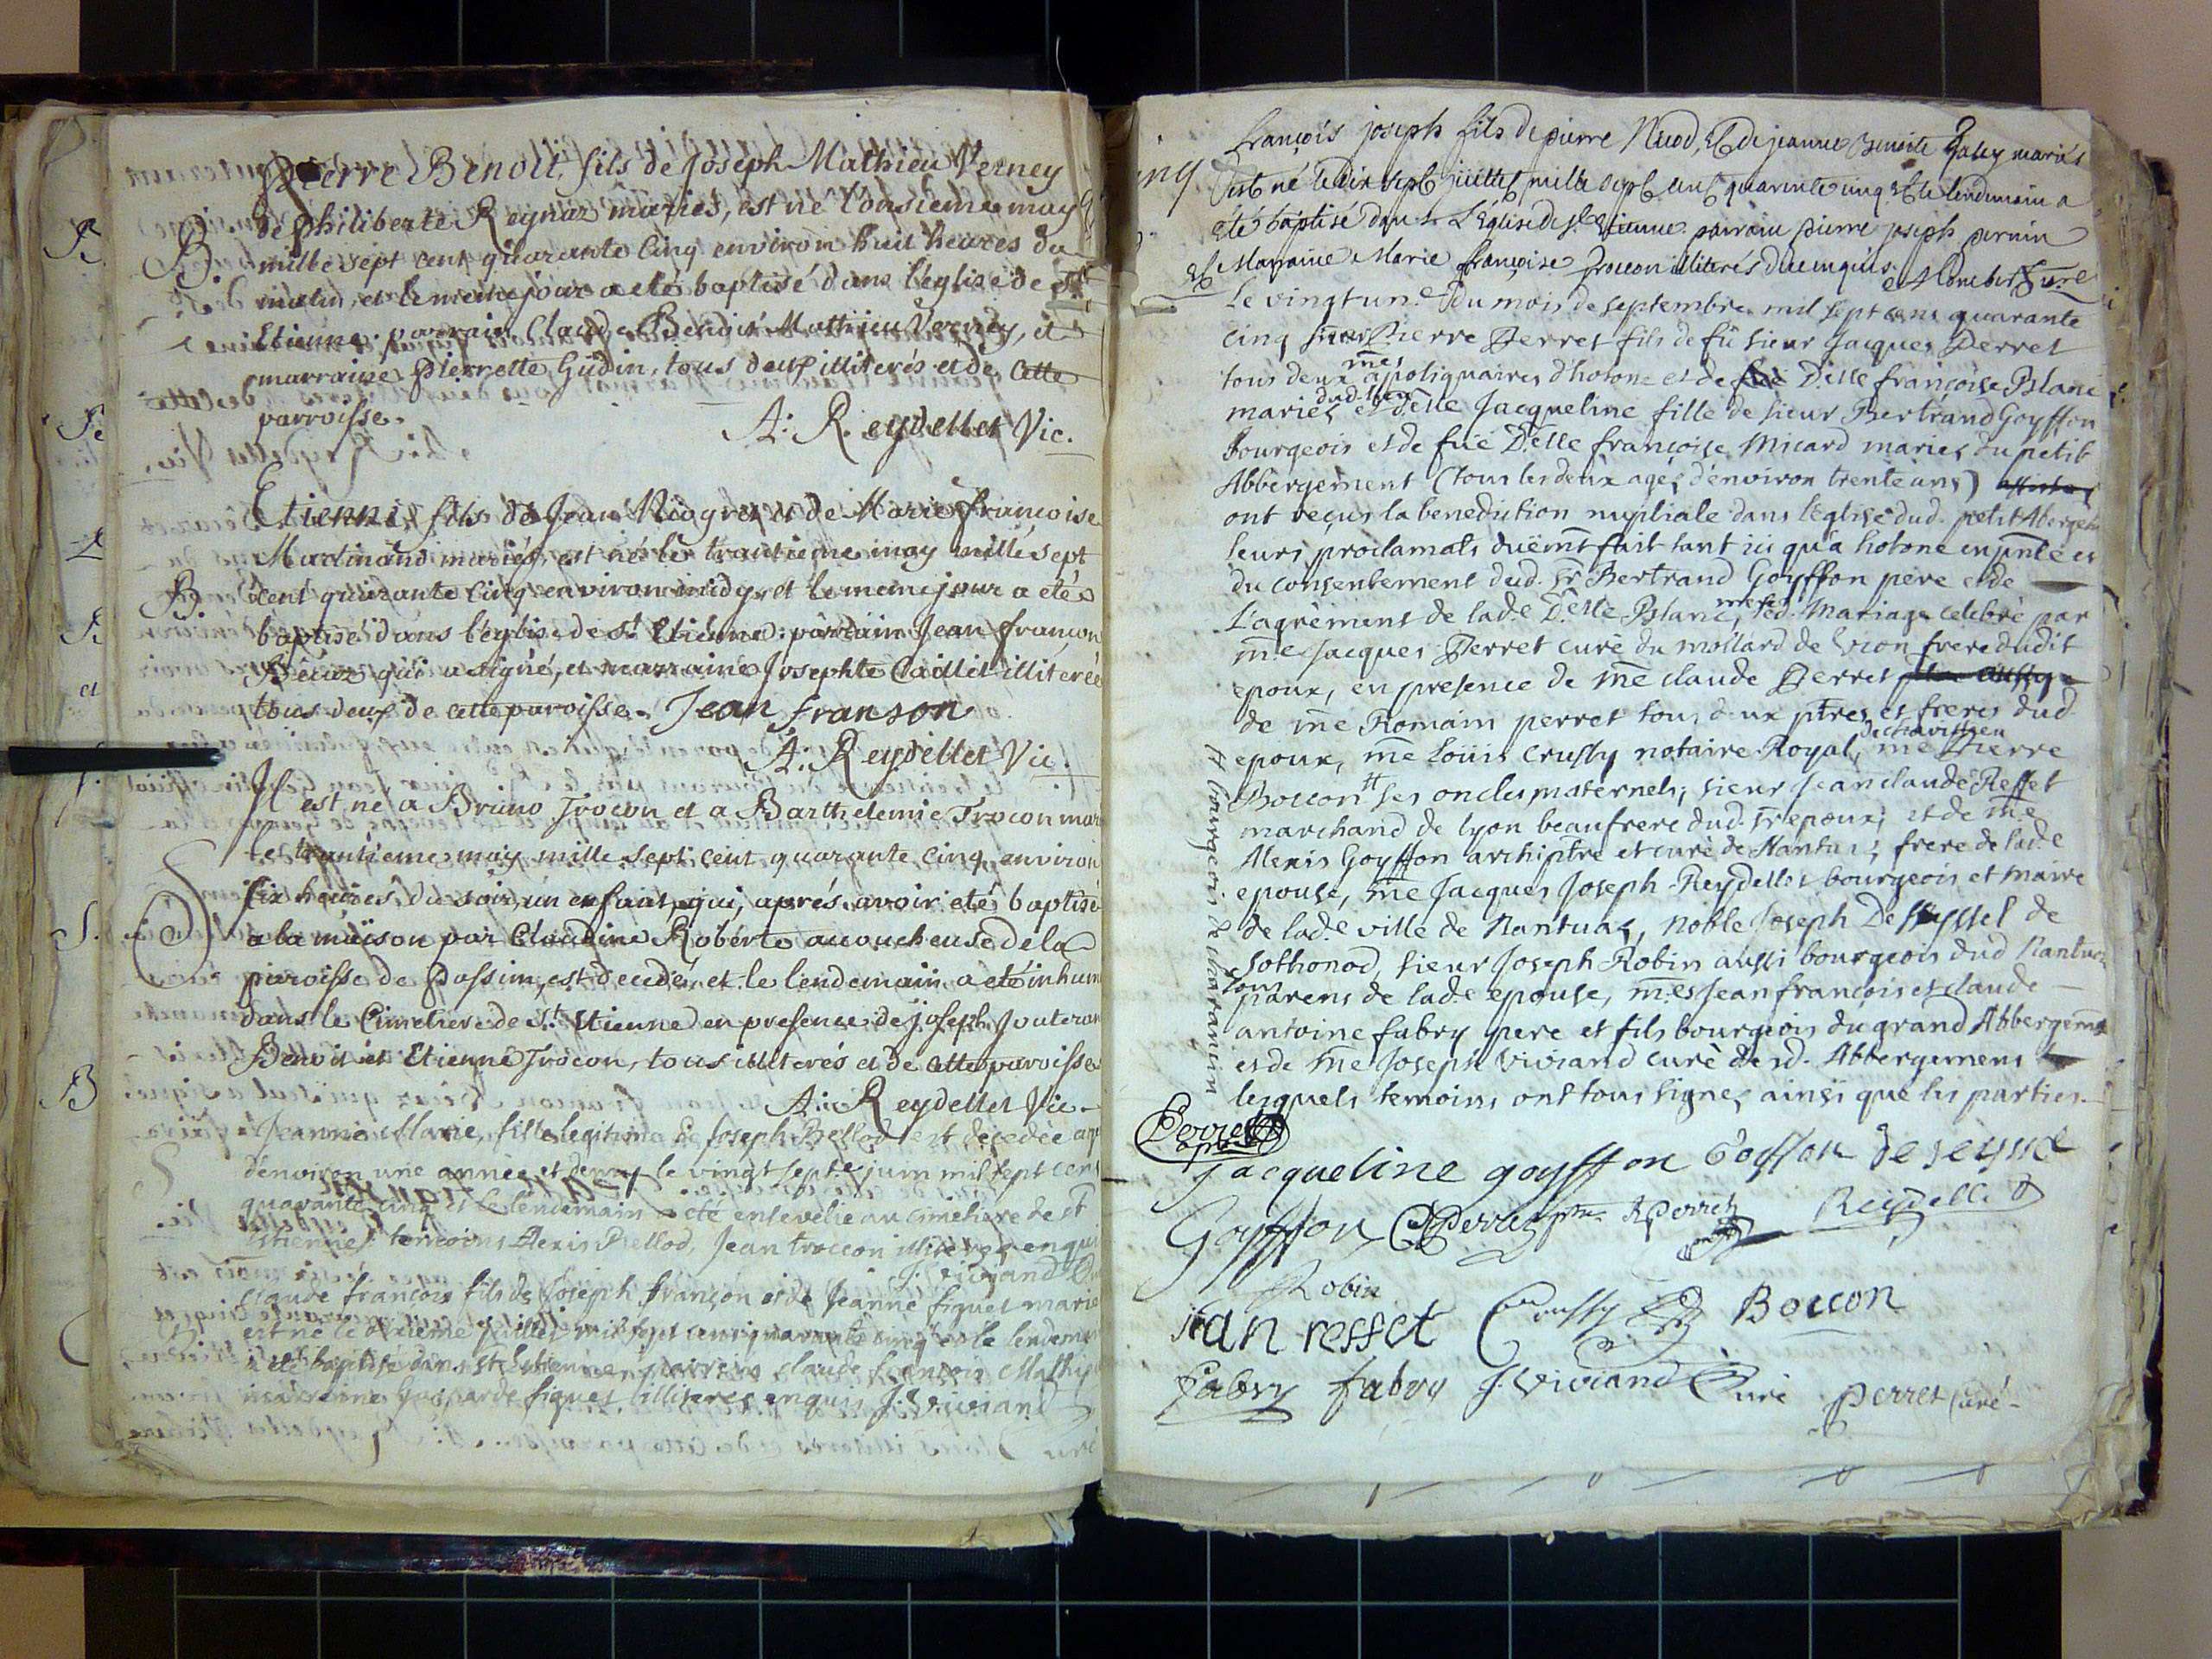 Pierre Benoit, fils de Joseph Mathieu Verney
de philiberte Reynaz mariés, est né l'onsieme may
B. mille sept cent quarante Cinq environ huit heures du
matin, et le meme jour a eté baptisé dans l'église de St
Etienne: parrain Claude Benoit Mathieu Verney, et
marraine pierrette Gudin, tous deux illiterés et de cette
parroisse.
A: Reydellet Vic.
Etienne, fils de Jean Niogret et de Marie françoise
Martinand mariés, est né le trantieme may mille sept
B. cent quarante Cinq environ midy, et le meme jour a eté
baptisé dans l'église de St Etienne: parrain Jean françon
qui a signé, et marraine Josephte Caillet illiterée
tous deux de cette paroisse. Jean franson
A: Reydellet Vic.
Il est né a Bruno Trocon et a Barthelemie Trocon mar
le trantieme may mille sept cent quarante cinq environ
six heures du soir, un enfant, qui, aprés avoir eté baptisé
S. a la maison par Claudine Roberte accoucheuse de la
paroisse de Passim, est decedé, et le lendemain a eté inhum
dans le Cimetier de St. Etienne en presence de joseph Jouteron
Benoit et Etienne Trocon, tous illiterés et de cette paroisse
A: Reydellet Vic.
Jeanne Marie, fille legitime de Joseph Bellod est decedée
d'environ une année et demy le vingt septe juin mil sept cent
quarante cinq et le lendemain a eté ensevelie au cimetiere de st
estienne temoins Alexis Bellod, Jean trocon illiterés enquis
J. Viviand
Claude françois fils de Joseph françon et de Jeanne figuet marié
est né le juillet mil sept cent quarante cinq et le lendemain
a eté baptisé dans st Estienne parrein claude françois Mathieu
marrenne Gasparde figuet illiteres enquis J. Viviand
Curé
françois joseph fils de pierre Nicod, Et de jeanne Benoite Galey mariés
est né le dix sept juillet mille sept cent quarente cinq et le lendemain a
eté baptisé dans L'Église de st Etienne parrain pierre joseph pernin
Et Marraine Marie françoise Trocon illiterés duenquis
Le vingt un.e du mois de septembre mil sept cens quarante
cinq Pierre Perret fils de fû sieur Jacques Perret
mes
tous deux apotiquaires d'hotone et de D.elle françoise Blanc
dud. lieu
mariés et d.elle Jacqueline fille de sieur Bertrand Goyffon
bourgeois et de fuë D.elle françoise Micard mariés du petit
Abbergement (tous les deux agés d'environ trente ans)
ont reçus la benediction nuptiale dans l'église dud. petit Abergem
leurs proclamats duëmt fait tant ici qu'a hotone en pnce et
du consentement dud. Sr Bertrand Goyffon pere et de
L'agrèment de lad.e D.elle Blanc, led. Mariage celebré par
me Jacques Perret curé du mollard de Vion frere dudit
epoux, en presence de me claude Perret
de me Romain perret tous deux ptres et freres dud.
de chavillieu
epoux, me Louis Crussy notaire Royal, me Pierre
Boccon # ses oncles maternels, sieur Jean claude Resset
marchand de lyon beaufrere dud. Sr epoux, et de me
Alexis Goyffon archiptre et curé de Nantua, frere de lad.e
epouse, me Jacques Joseph Reydellet bourgeois et maire
de lad.e ville de Nantuaz, noble Joseph De seyssel de
Sothonod, sieur Joseph Robin aussi bourgeois dud Nantua
tous
parens de lad.e epouse, mes Jean francois et claude
antoine fabry pere et fils bourgeois du grand Abbergemt
et de me Joseph Viviand curé desd. Abbergemens
lesquels temoins ont tous signes ainsi que les parties.
# bourgeois de
Perret
jacqueline goyffon Goyffon De seyssel
Goyffon C Perret ptre R Perret Reydellet
Robin
jean resset Croussy Boccon
fabry fabry J. Viviand Curé perret Curé